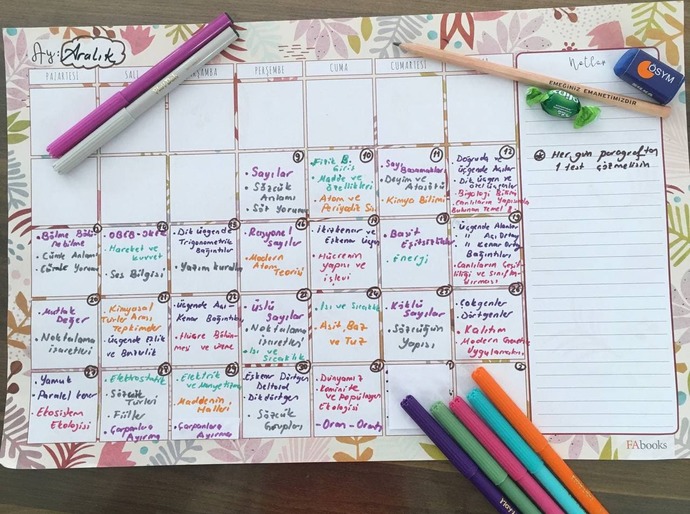 Ay: Aralık
PAZARTESİ
SALI
PERŞEMBE
CUMA
CUMARTESİ
Notlar
ÖSYM
EMEĞİNİZ EMANETİMİZDİR
Her gün paragraftan
1 test çözmelisin
9
• Sayılar
• Sözcük
Anlamı
Söz Yorumu
10
Fizik B.
Giriş
• Madde ve
özellikleri
• Atom ve
11
• Sayı
Basamakları
• Deyim ve
Atasözü
• Kimya Bilimi
12
Doğruda ve
üçgende Açılar
• Dik üçgen ve
özel üçgenler
• Biyoloji Bilimi
• Canlıların Yapısında
Bulunan Temel B.
• Bölme
• Cümle Anlamı
• Cümle Yorumu
• OBEB-OKEK
• Hareket ve
kuvvet
• Ses Bilgisi
Dik üçgende
Trigonometrik
Bağıntılar
• Yazım kuralları
• Rasyonel
sayılar
• Modern
Atom
Teorisi
• İkizkenar ve
Eşkenar üçgen
• Hücrenin
yapısı ve
işlevi
18
• Basit
Eşitsizlikler
• Enerji
• üçgende Alanlar
" Açıortay
" Kenarortay
Bağıntıları
• Canlıların Çeşit-
liliği ve Sınıflan-
dırması
20
• Mutlak
Değer
• Noktalama
işaretleri
21
Kimyasal
Türler Arası
Tepkimeler
üçgende Eşlik
ve Benzerlik
22
• üçgende Açı-
Kenar Bağıntıları
• Hücre Bölün-
mesi ve üreme
23
• üslü
sayılar
• Noktalama
işaretleri
• Isı ve
Sıcaklık
24
• Isı ve Sıcaklık
• Asit, Baz
ve Tuz
25
• Köklü
Sayılar
• Sözcüğün
Yapısı
• Çokgenler
• Dörtgenler
• Kalıtım
• Modern Genetik
Uygulamaları
• Yamuk
• Paralel kenar
• Ekosistem
Ekolojisi
• Elektrostatik
• Sözcük
Türleri
• Fiiller
• Çarpanlara
Ayırma
• Elektrik
ve Manyetizma
• Maddenin
Halleri
• Çarpanlara
Ayırma
Eşkenar Dörtgen
Deltoid
• Dikdörtgen
• Sözcük
Grupları
• Dünyamız
• Komünite
ve Popülasyon
Ekolojisi
- Oran - Orantı
FAbooks